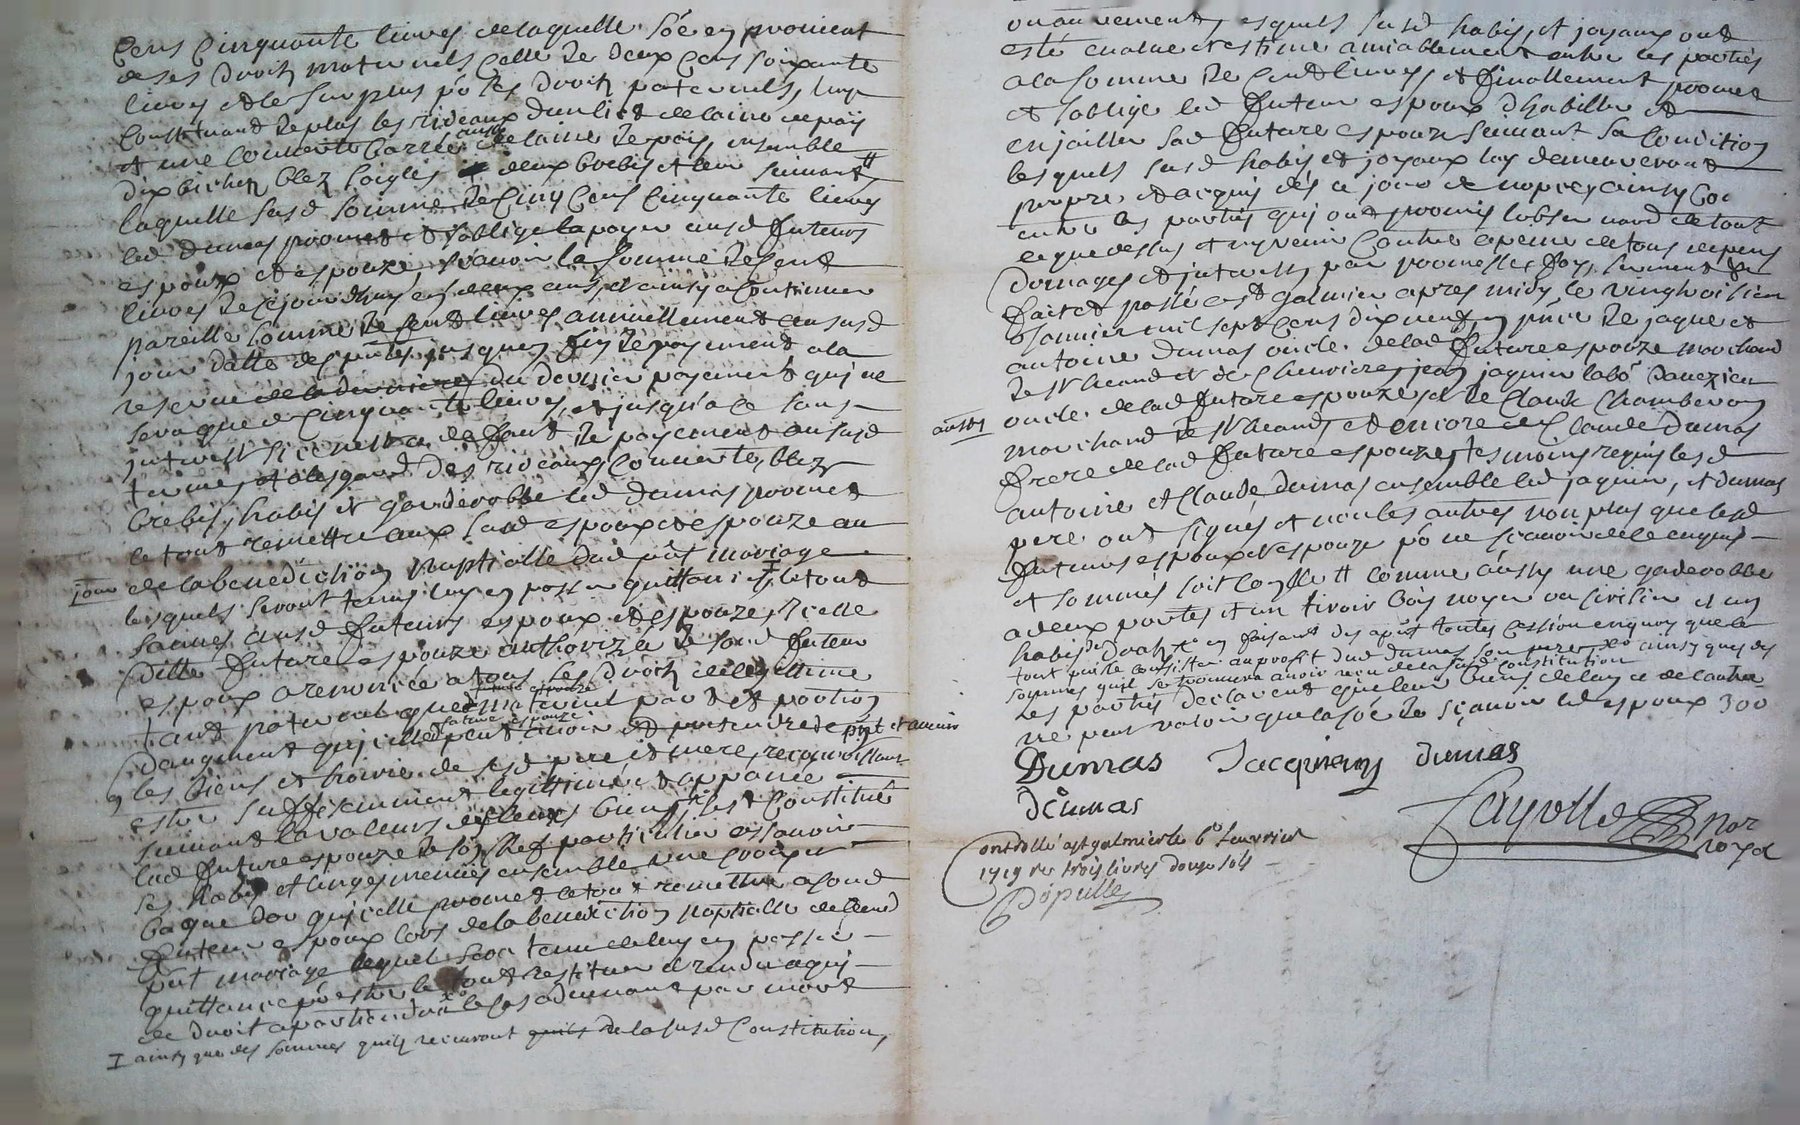 Cens Cinquante livres de laquelle so͠e en provient
de ses droits maternels celle de deux cens soixante
livres et le surplus po͠ ses droits paternels, luy
Constituant de plus les rideaux d'un lict de laine de païs
et une couverte barrée aussy de laine de païs, ensemble
dix bichets bled soigle, deux brebis et leur suivant ⧺
laquelle susd somme de Cinq Cens Cinquante livres
led dumas promet et s'oblige la payer ausd futeurs
espoux et espouze, sçavoir la somme de Cent
livres de ce jourdhuy en deux ans, et ainsy a Continuer
pareille somme de Cent livres annuellement au susd
jour datte des pntes jusques fin de payement a la
reserve de la derniere du dernier payement qui ne
sera que de Cinquante livres, et jusqua ce sans
interest si ce nest a deffaut de payement au susd
termes et a lesgard des rideaux, Couverte, bled
brebis, habis et garderobbe led dumas promet
le tout remettre aux susd espoux et espouze au
jour de la benediction nuptialle dud pnt mariage
lesquels seront tenus luy en passer quittance, le tout
sommes ausd futeurs espoux et espouze, Icelle
ditte future espouze authorizée de sond futeur
espoux a renoncé a tous ses droits de legitime
tant paternels que maternels part et portion
future espouze
daugment qu'icelle future espouze peut avoir et pretendre de pnt et avenir
es les biens et hoirie de sesd pere et mere, recognoissant
estre suffisemment legittimée et appanée
suivant la valeurs de leurs biens, Sest Constitué
lad future espouze de son chef particulier assavoir
ses habis et linges menües ensemble une croix et
bague d'or qu'icelle promet le tout remettre a sond
futeur espoux lors de la benediction nuptialle de leurd
pnt mariage lequel sera tenu de luy en passer
quittance po͠ estre le tout restitué et rendu a qui
de droit apartiendra le cas advenant par mort
I ainsy que des sommes quils recevront quils de la susd Constitution,
ou autrement, esquels susd habis, et joyaux ont
esté evalué et estimé amiablement entre les parties
a la somme de Cent livres, et finallement promet
et soblige led futeur espoux d'habiller et
enjailler sad future espouze suivant sa Condition
lesquels susd habis et joyaux luy demeureront
propre et acquis dés ce jour de nopces, ainsy Co͠
entre les parties qui ont promis lobservand de tout
ce que dessus et ny venir Contre a peine de tous depens
domages et interests par promesse, foy, serment &a
fait et passé a st galmier apres midy le vingtroisiem
Janvier mil sept Cens dix neuf en pnce de jaque et
antoine dumas oncle de lad future espouze marchand
de st heand et de Chevrieres, jean jaquin labo͠
oncle de lad future espouze et de Claude Chamberon
aussy
marchand de st heand, et encore de Claude dumas
frere de lad future espouze, tesmoins requis lesd
antoine et Claude dumas ensemble led jaquin, et dumas
pere ont signés et non les autres non plus que lesd
futeurs espoux et espouze po͠ ne sçavoir de ce enquis
et sommés soit Coñlle ⧺ comme aussy une garderobbe
a deux portes et un tiroir bois noyer ou serisier et un
habis de drap en faisant des apnt toutes Cession en quoy que le
tout puisse consister au profit dud dumas son pere ainsy que des
sommes quil se trouvera avoir receu de la susd constitution
les parties declarent que leur biens de lun et de lautre
ne peut valoir que la so͠e de sçavoir led espoux 300
Dumas Jacquiens dumas
dumas
fayolle nor
royal
Controllé a st galmier le 6e fevrier
1719 re trois livres douze sols
Dépulle